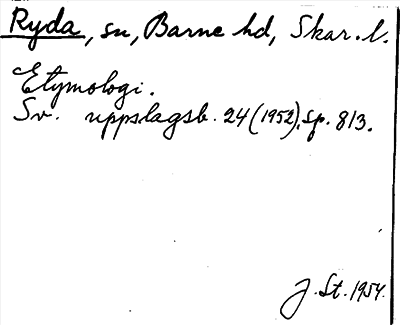 Ryda, sn, Barne hd, Skar. l.
Etymologi.
Sv. uppslagsb. 24 (1952), sp. 813.
J. St. 1954.